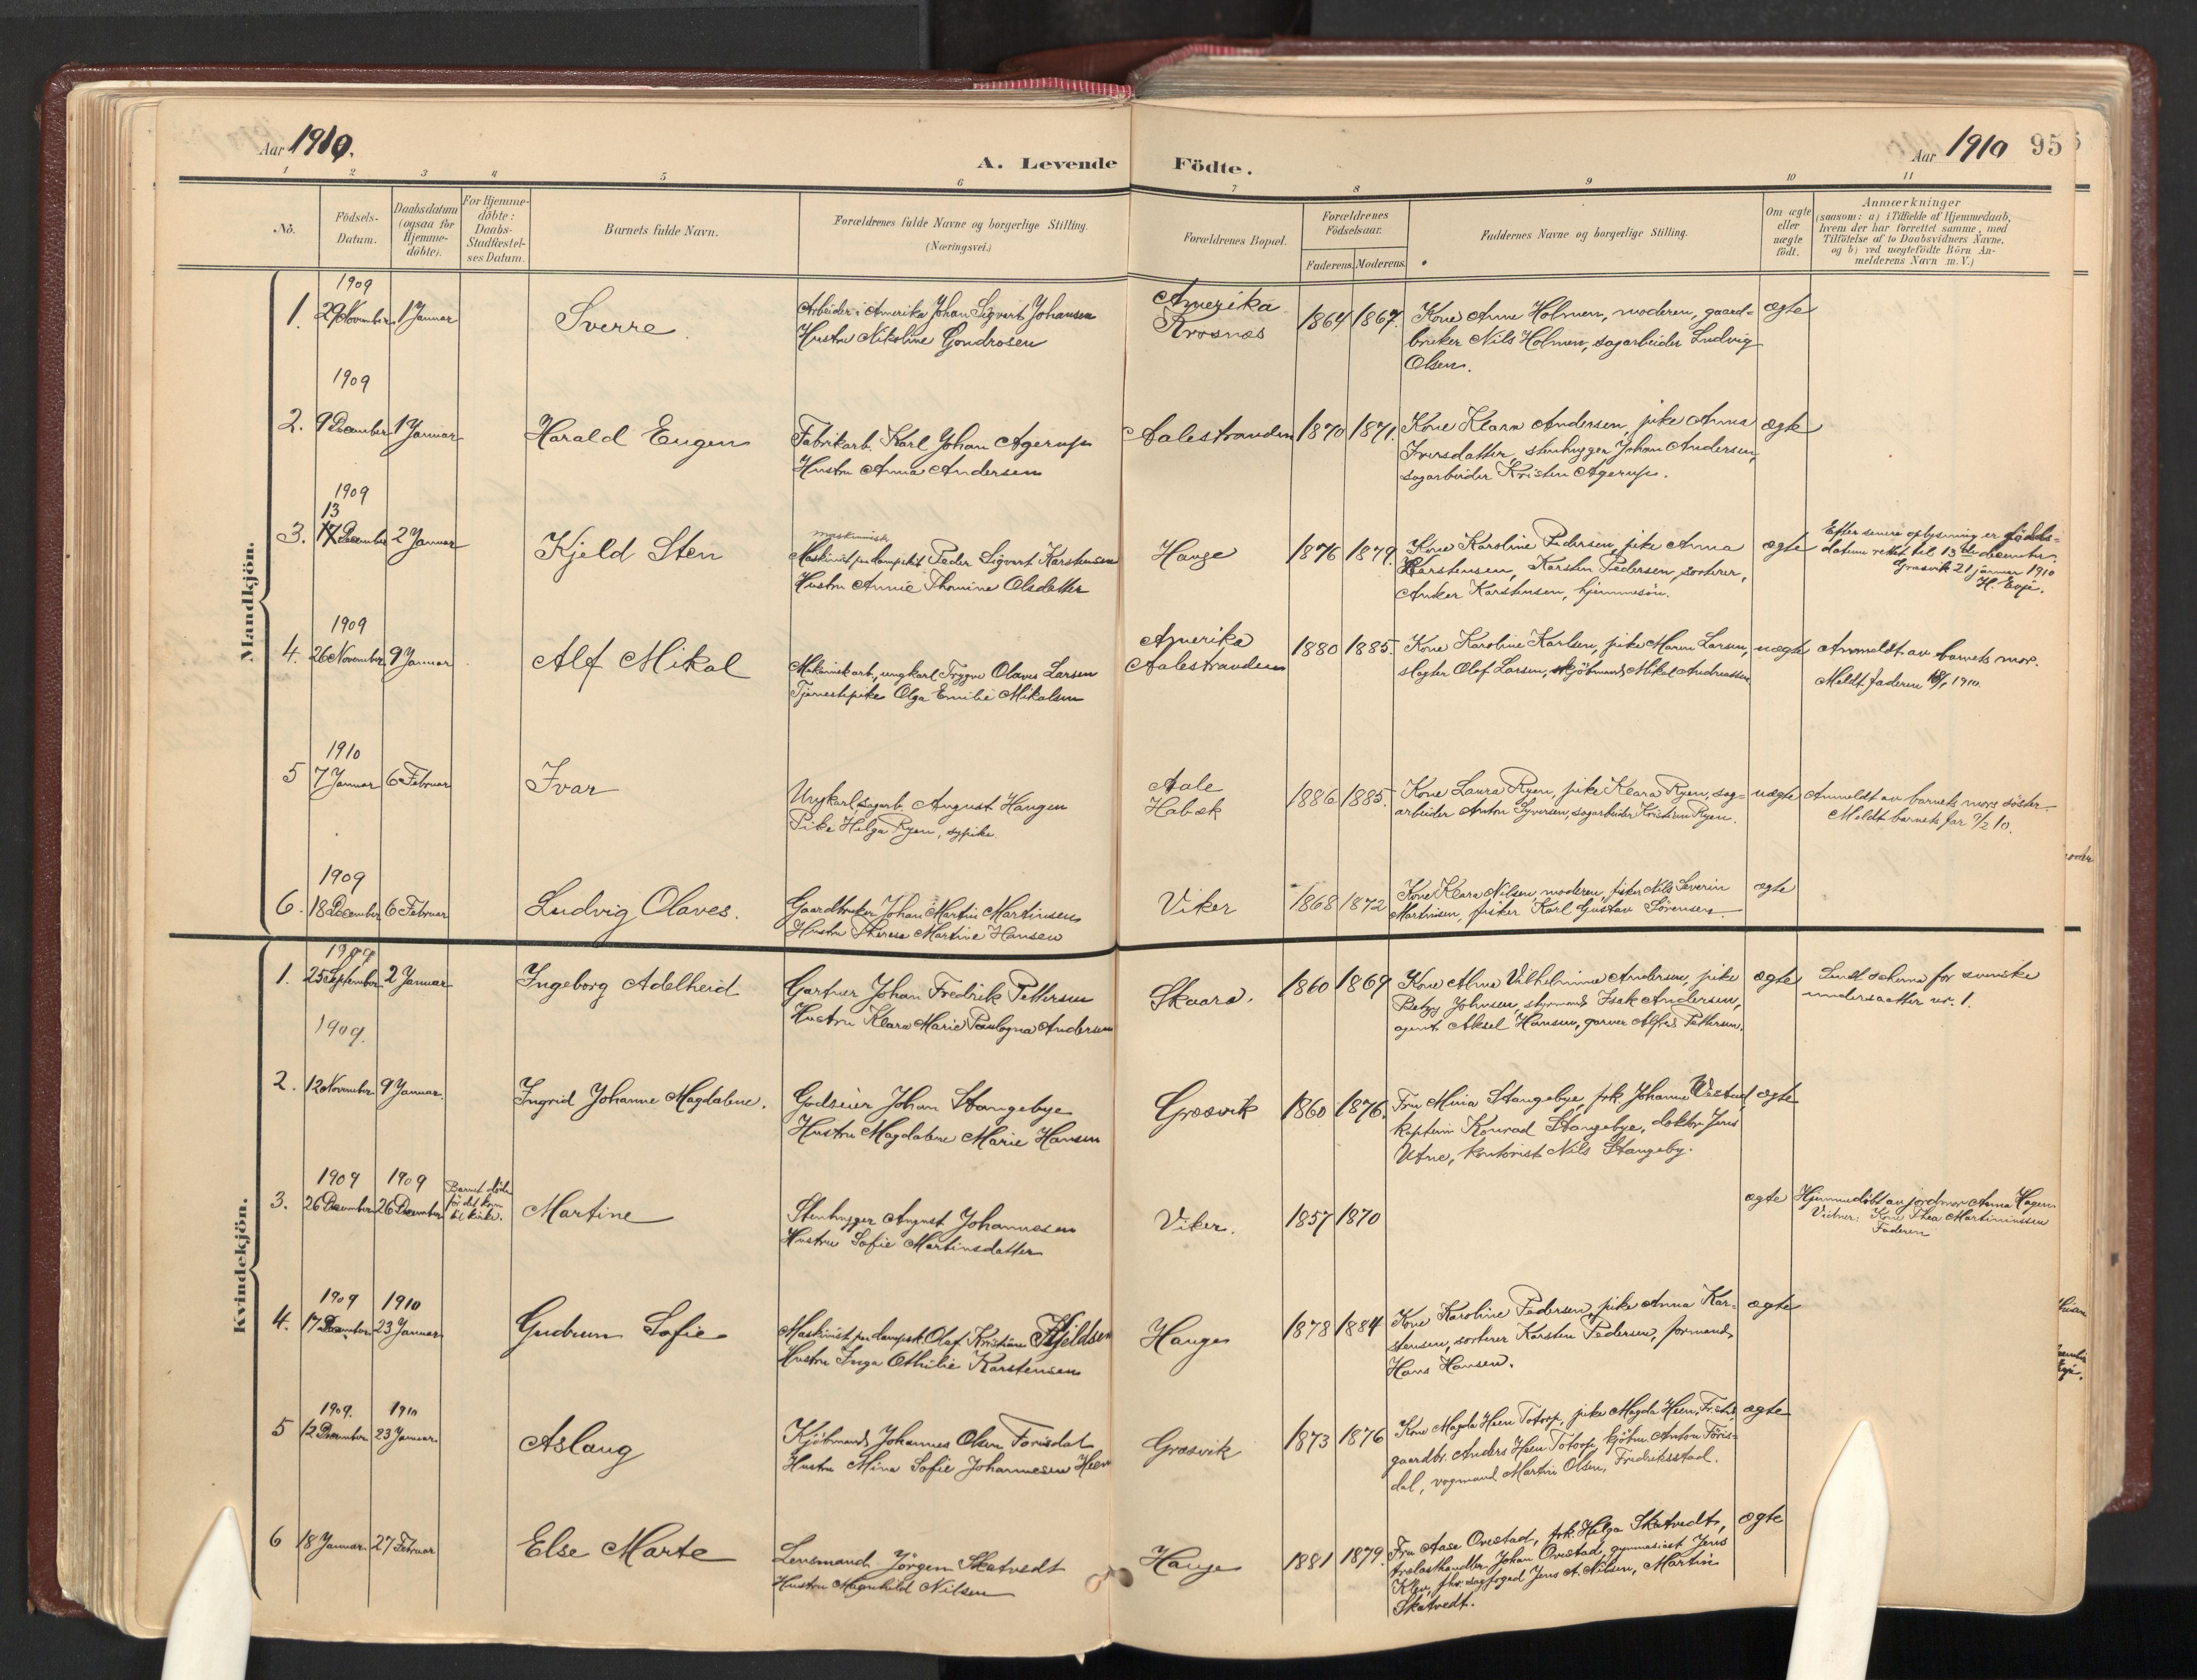 Aar 1910.
A. Levende
Födte.
Aar 1910
95
1 2 3 4 5 6 7 8 9 10 11
No.
Födsels-
Datum.
Daabsdatum
(ogsaa for
Hjemme-
döbte).
For Hjemme-
döbte:
Daabs-
Stadfæstel-
ses Datum.
Barnets fulde Navn.
Forældrenes fulde Navne og borgerlige Stilling.
(Næringsvei.)
Forældrenes Bopæl.
Forældrenes
Födselsaar.
Faderens. Moderens.
Faddernes Navne og borgerlige Stilling.
Om ægte
eller
uægte
födt.
Anmærkninger
(saasom: a) i Tilfælde af Hjemmedaab,
hvem der har forrettet samme, med
Tilföielse af to Daabsvidners Navne,
og b) ved uægtefödte Börn An-
melderens Navn m. V.)
Mandkjön.
1909
1. 29 November 1 Januar
Sverre
Arbeider i Amerika Johan Sigvert Johansen
Hustru Nikoline Gondrosen
Amerika
Krosnæs
1864 1867.
Kone Anne Holmen, moderen, gaard=
bruker Nils Holmen, sagarbeider Ludvig
Olsen.
ægte
1909
2. 9 December 1 Januar
Harald Eugen
Fabrikarb. Karl Johan Agerup
Hustru Anna Andersen
Aalestranden
1870 1871.
Kone Klara Andersen, pike Anna
Iversdatter, stenhugger Johan Andersen,
sagarbeider Kristen Agerup.
ægte
1909
13
3. 17 December 2 Januar
Kjeld Sten
maskinmstr
Maskinist paa dampskib Peder Sigvert Karstensen
Hustru Annie Thomine Olsdatter
Hauge
1876 1879.
Kone Karoline Pedersen, pike Anna
Karstensen, Karsten Pedersen sorterer,
Anker Karstensen, hjemmesön.
ægte
Efter senere oplysning er födsels=
datum rettet til 13de december.
Græsvik 21 januar 1910
H. Evje.
1909
4. 26 November 9 Januar
Alf Mikal
Mekanisk arb., ungkarl Trygve Olaves Larsen
Tjenestepike Olga Emilie Mikalsen
Amerika
Aalestranden
1880 1885.
Kone Karoline Karlsen, pike Maren Larsen,
slagter Olof Larsen, kjöbmand Mikal Andreassen
uægte
Anmeldt av barnets mor.
Meldt faderen 18/1 1910.
1910
5 7 Januar 6 Februar
Ivar
Ungkarl, sagarb. August Haugen
Pike Helga Ryen, sypike.
Aale
Habæk
1886 1885.
Kone Laura Ryen, pike Klara Ryen, sag=
arbeider Anton Syversen, sagarbeider Kristian Ryen.
uægte
Anmeldt av barnets mors söster
Meldt barnets far 7/2 10.
1909
6. 18 December 6 Februar
Ludvig Olaves.
Gaardbruker Johan Martin Martinsen
Hustru Therese Martine Hansen
Viker
1868 1872
Kone Klara Nilsen, moderen, fisker Nils Severin
Martinsen, fisker Karl Gustav Sörensen
ægte
Kvindekjön.
1909
1. 25 September 2 Januar
Ingeborg Adelheid
Gartner Johan Fredrik Pettersen
Hustru Klara Marie Paulogna Andersen
Skaara.
1860 1869
Kone Alma Vilhelmine Andersen, pike
Betzy Johnsen, styrmand Isak Andersen,
agent Aksel Hansen, garver Alfred Pettersen.
ægte
Sendt oskema for svenske
undersaatter nr. 1.
1909.
2. 12 November 9 Januar.
Ingrid Johanne Magdalene.
Godseier Johan Stangebye
Hustru Magdalene Marie Hansen
Græsvik
1860 1876.
Fru Mina Stangebye, frk. Johanne
kaptein Konrad Stangebye, doktor Jens
Utne, kontorist Nils Stangeby.
ægte
1909 1909
3. 26 December 26 December
Barnet döde
för det kom
til kirke.
Martine
Stenhugger August Johannesen
Hustru Sofie Martinsdatter
Viker.
1857 1870
ægte
Hjemmedöbt av jordmor Anna Hagen
Vidner: Kone Thea Martiniussen
Faderen
1909 1910
4. 17 December 23 Januar
Gudrun Sofie
Maskinist paa dampsk. Olaf Kristian Kjeldsen
Hustru Inga Othilie Karstensen
Hauge
1878 1884
Kone Karoline Pedersen, pike Anna Kar=
stensen, sorterer Karsten Pedersen, formand
Hans Hansen.
ægte
1909. 1910
5 12 December 23 Januar
Aslaug
Kjöbmand Johannes Olsen Forisdal
Hustru Mina Sofie Johannesen Heen
Græsvik
1873 1876
Kone Magda Heen Totorp, pike Magda Heen, Fr.stad,
gaardbr. Anders Heen Totorp, kjöbm. Anton Föris=
dal, vognmand Martin Olsen, Fredriksstad.
ægte
6 18 Januar 27 Februar
Else Marte
Lensmand Jörgen Skatvedt
Hustru Magnhild Nilsen
Hauge
1881 1879.
Fru Aase Onstad, frk. Helga Skatvedt,
trælasthandler Johan Onstad, gymnasiast Jens
Klev, sagförer Jens A. Nilsen, Martin
Skatvedt.
ægte